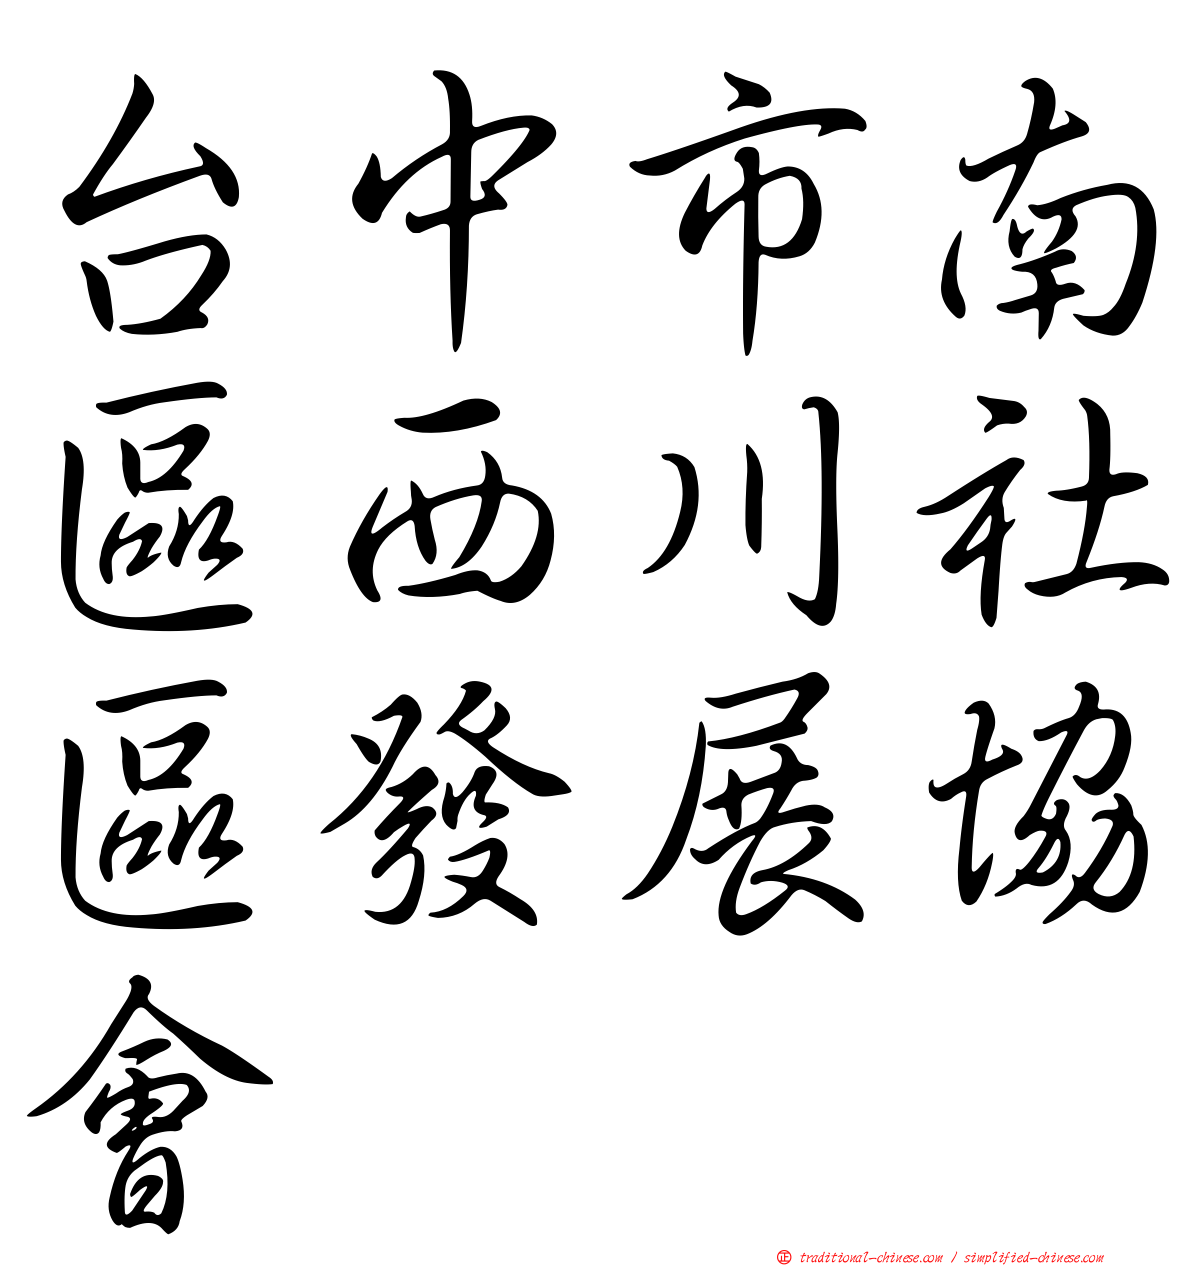 台中市南
區西川社
區發展協
會
正 traditional-chinese.com / simplified-chinese.com